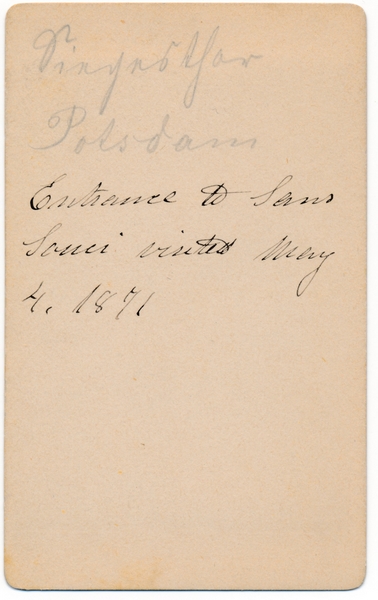 Siegesthor
Potsdam
Entrance to Sans
Souci visited May
4. 1871